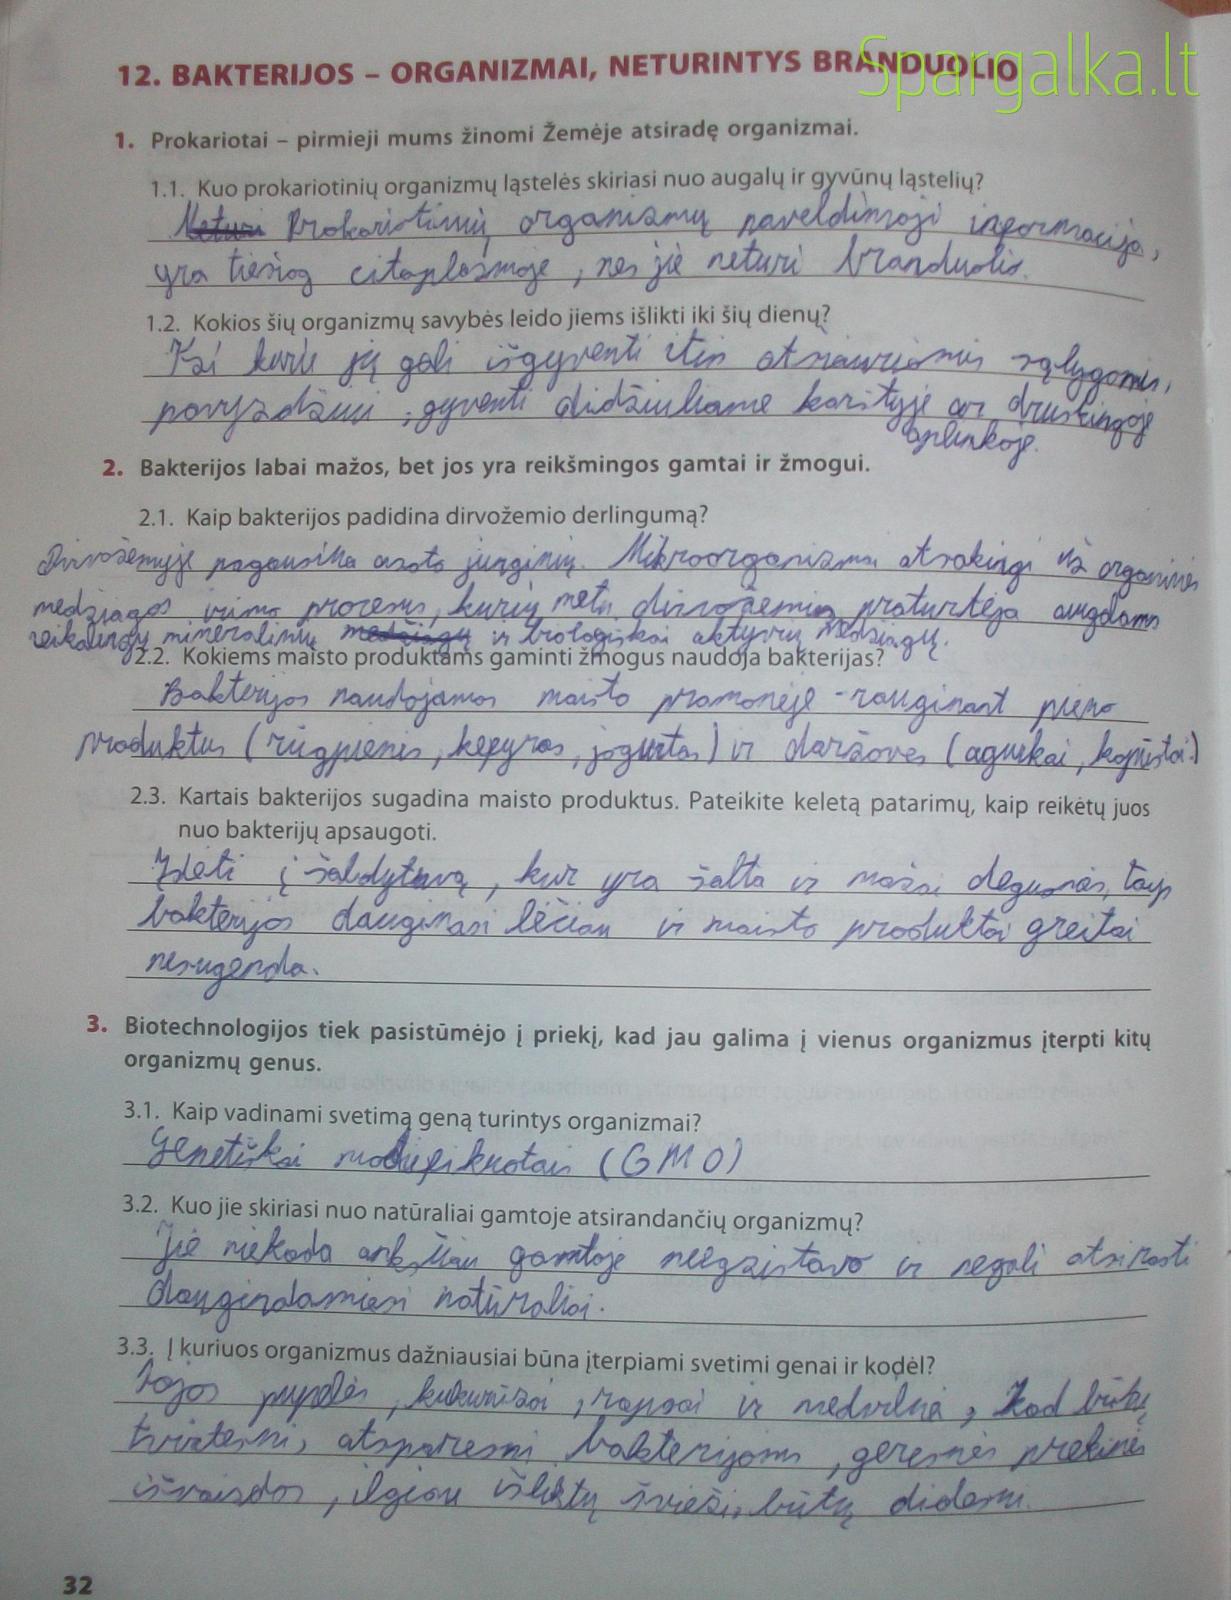 Spargalka.lt
12. BAKTERIJOS – ORGANIZMAI, NETURINTYS BRANDUOLIO
1. Prokariotai – pirmieji mums žinomi Žemėje atsiradę organizmai.
1.1. Kuo prokariotinių organizmų ląstelės skiriasi nuo augalų ir gyvūnų ląstelių?
Neturi Prokariotinių organizmų paveldimoji informacija,
yra tiesiog citoplazmoje, nes jie neturi branduolio.
1.2. Kokios šių organizmų savybės leido jiems išlikti iki šių dienų?
Kai kurie jų gali išgyventi itin atšiauriomis sąlygomis,
pavyzdžiui, gyventi didžiuliame karštyje ar druskingoje
aplinkoje.
2. Bakterijos labai mažos, bet jos yra reikšmingos gamtai ir žmogui.
2.1. Kaip bakterijos padidina dirvožemio derlingumą?
Dirvožemyje pagausina azoto junginių. Mikroorganizmai atsakingi už organinės
medžiagos irimo procesus, kurių metu dirvožemis praturtėja augalams
reikalingų mineralinių medžiagų ir biologiškai aktyvių medžiagų.
2.2. Kokiems maisto produktams gaminti žmogus naudoja bakterijas?
Bakterijos naudojamos maisto pramonėje - rauginant pieno
produktus (rūgpienis, kefyras, jogurtas) ir daržoves (agurkai, kopūstai.)
2.3. Kartais bakterijos sugadina maisto produktus. Pateikite keletą patarimų, kaip reikėtų juos
nuo bakterijų apsaugoti.
Įdėti į šaldytuvą, kur yra šalta ir mažai deguonies, taip
bakterijos dauginasi lėčiau ir maisto produktai greitai
nesugenda.
3. Biotechnologijos tiek pasistūmėjo į priekį, kad jau galima į vienus organizmus įterpti kitų
organizmų genus.
3.1. Kaip vadinami svetimą geną turintys organizmai?
Genetiškai modifikuotais (GMO)
3.2. Kuo jie skiriasi nuo natūraliai gamtoje atsirandančių organizmų?
Jie niekada anksčiau gamtoje neegzistavo ir negali atsirasti
daugindamiesi natūraliai.
3.3. Į kuriuos organizmus dažniausiai būna įterpiami svetimi genai ir kodėl?
Sojos pupelės, kukurūzai, rapsai ir medvilnė, kad būtų
tvirtesni, atsparesni bakterijoms, geresnės prekinės
išvaizdos, ilgiau išliktų švieži, būtų didesni.
32